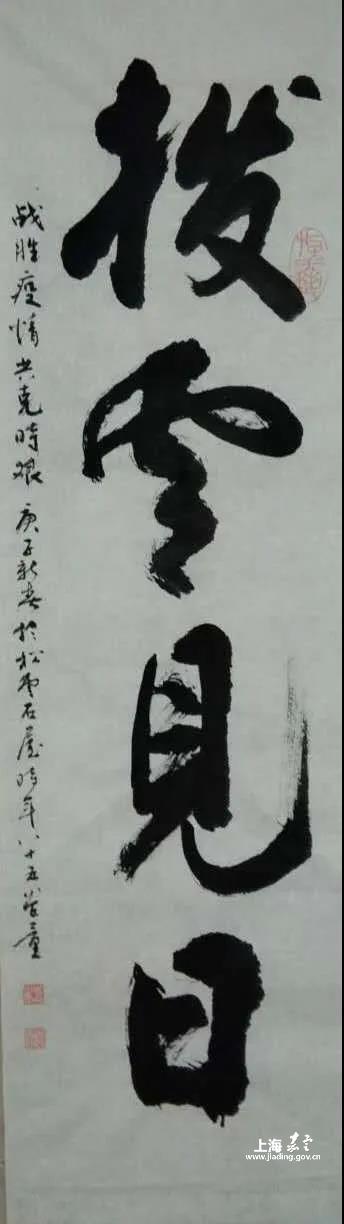 拨雲見日
战胜疫情共克時艰 庚子新春於松雪石屋時年八十五
上海嘉定
www.jiading.gov.cn